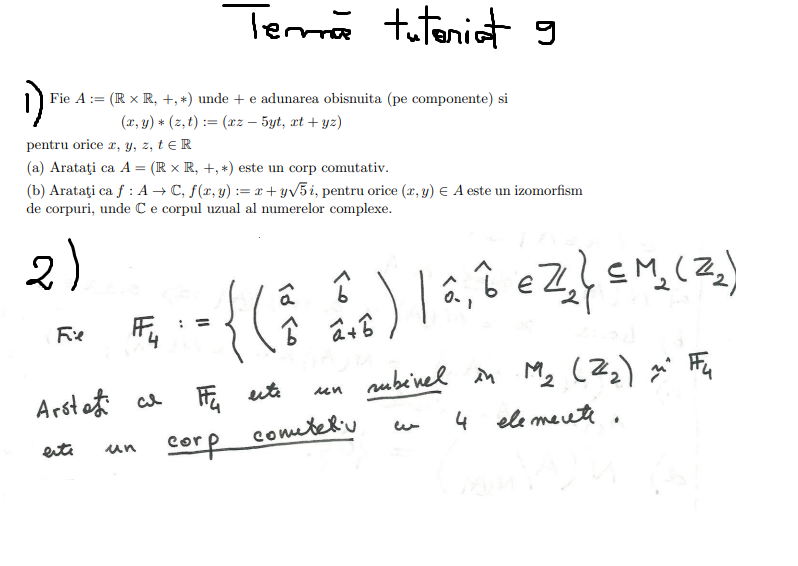 Temă tutoriat 9
1) Fie A := (ℝ × ℝ, +, ∗) unde + e adunarea obisnuita (pe componente) si
(x, y) ∗ (z, t) := (xz − 5yt, xt + yz)
pentru orice x, y, z, t ∈ ℝ
(a) Arataţi ca A = (ℝ × ℝ, +, ∗) este un corp comutativ.
(b) Arataţi ca f : A → ℂ, f(x, y) := x + y√5 i, pentru orice (x, y) ∈ A este un izomorfism
de corpuri, unde ℂ e corpul uzual al numerelor complexe.
2)
Fie 𝔽₄ := { ( â b̂ ; b̂ â+b̂ ) | â, b̂ ∈ ℤ₂ } ⊆ M₂(ℤ₂)
Arătați că 𝔽₄ este un subinel în M₂(ℤ₂) și 𝔽₄
este un corp comutativ cu 4 elemente.